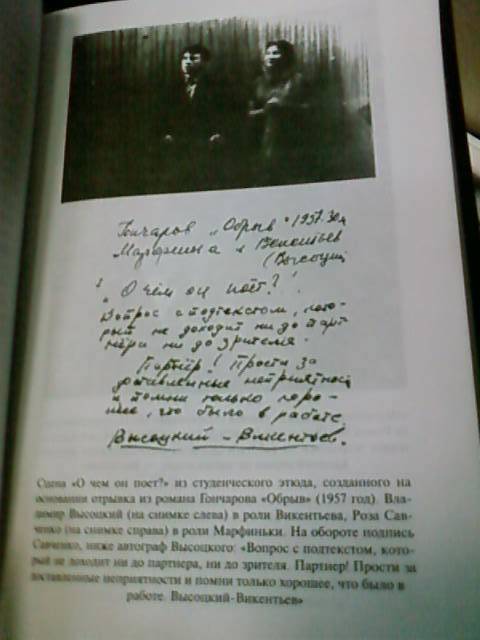 Гончаров „Обрыв“ 1957.
Марфинька и Викентьев
(Высоцкий
„О чём он поёт?“
Вопрос с подтекстом, кото-
рый не доходит ни до парт-
нёра ни до зрителя.
Партнёр! Прости за
доставленные неприятности
и помни только хоро-
шее, что было в работе
Высоцкий – Викентьев.
Сцена «О чем он поет?» из студенческого этюда, созданного на
основании отрывка из романа Гончарова «Обрыв» (1957 год). Вла-
димир Высоцкий (на снимке слева) в роли Викентьева, Роза Сав-
ченко (на снимке справа) в роли Марфиньки. На обороте подпись
Савченко, ниже автограф Высоцкого: «Вопрос с подтекстом, кото-
рый не доходит ни до партнера, ни до зрителя. Партнер! Прости за
доставленные неприятности и помни только хорошее, что было в
работе. Высоцкий-Викентьев»